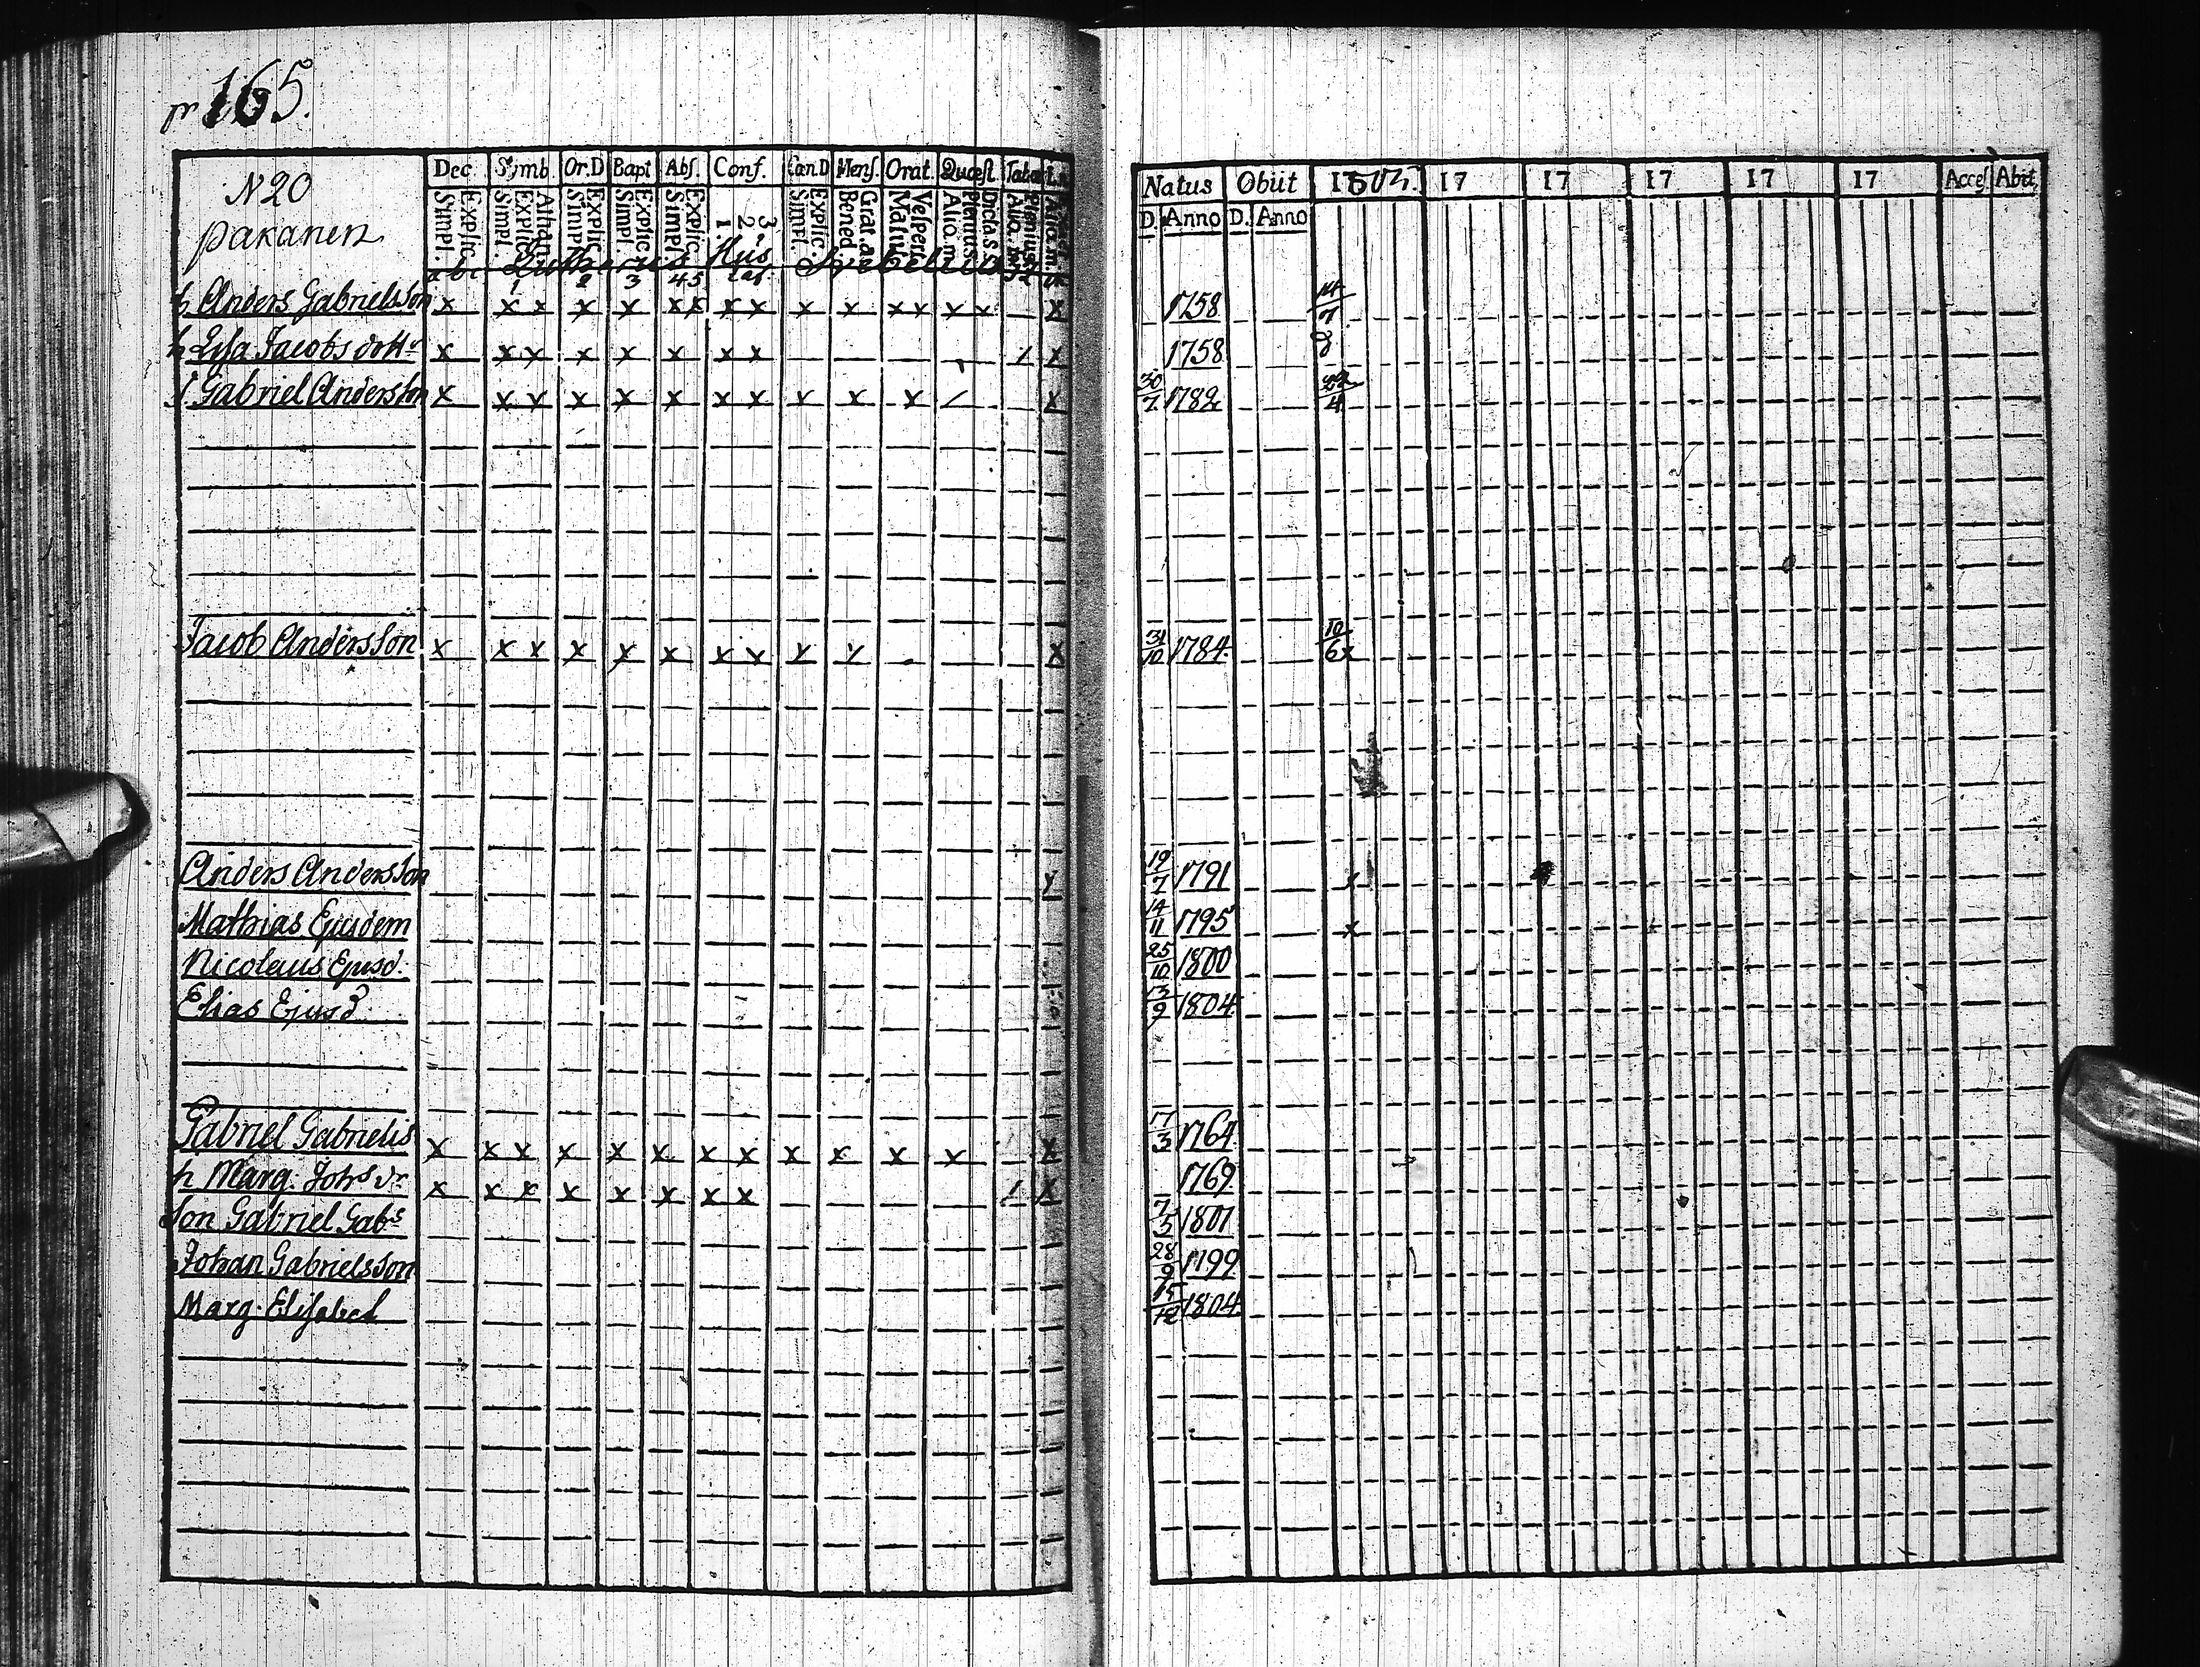 165.
Dec. Simb. Or.D Bapt Abs. Conf. Can.D Mens. Orat. Quæst. Taba
N20
Pakanen
Simpl. Explic. Simpl. Explic. Athan. Simpl. Explic. Simpl. Explic. Simpl. Explic. 1. 2. 3. Simpl. Explic. Bened. Grat. a. Matut. Vespert. Alio. m. Plenius. Dicta S. S. Alio. m. Plenius.
a b c Lutherus Hus Svebelius
1 2 3 4 5 taf
h Anders Gabrielsson x x x x x x x x x x x x x x x x x
h Lisa Jacobs dottr x x x x x x x x 1 x
s Gabriel Andersson x x x x x x x x x x x / x
Jacob Andersson x x x x x x x x x x x
Anders Andersson x
Mathias Ejusdem
Nicolaus Ejusd.
Elias Ejusd
Gabriel Gabrielis x x x x x x x x x x x x x
h Marg. Johs dr x x x x x x x x 1 x
son Gabriel Gabs
Johan Gabrielsson
Marg. Elisabet
Natus Obiit 17 17 17 17 17 17 Acces. Abit.
D. Anno D. Anno
1758 14/7
1758 8
30/7 1782 22/4
31/10 1784 10/6 x
19/7 1791 x
14/11 1795 x
25/10 1800
13/9 1804
17/3 1764
1769
7/5 1801
28/9 1799
15/12 1804